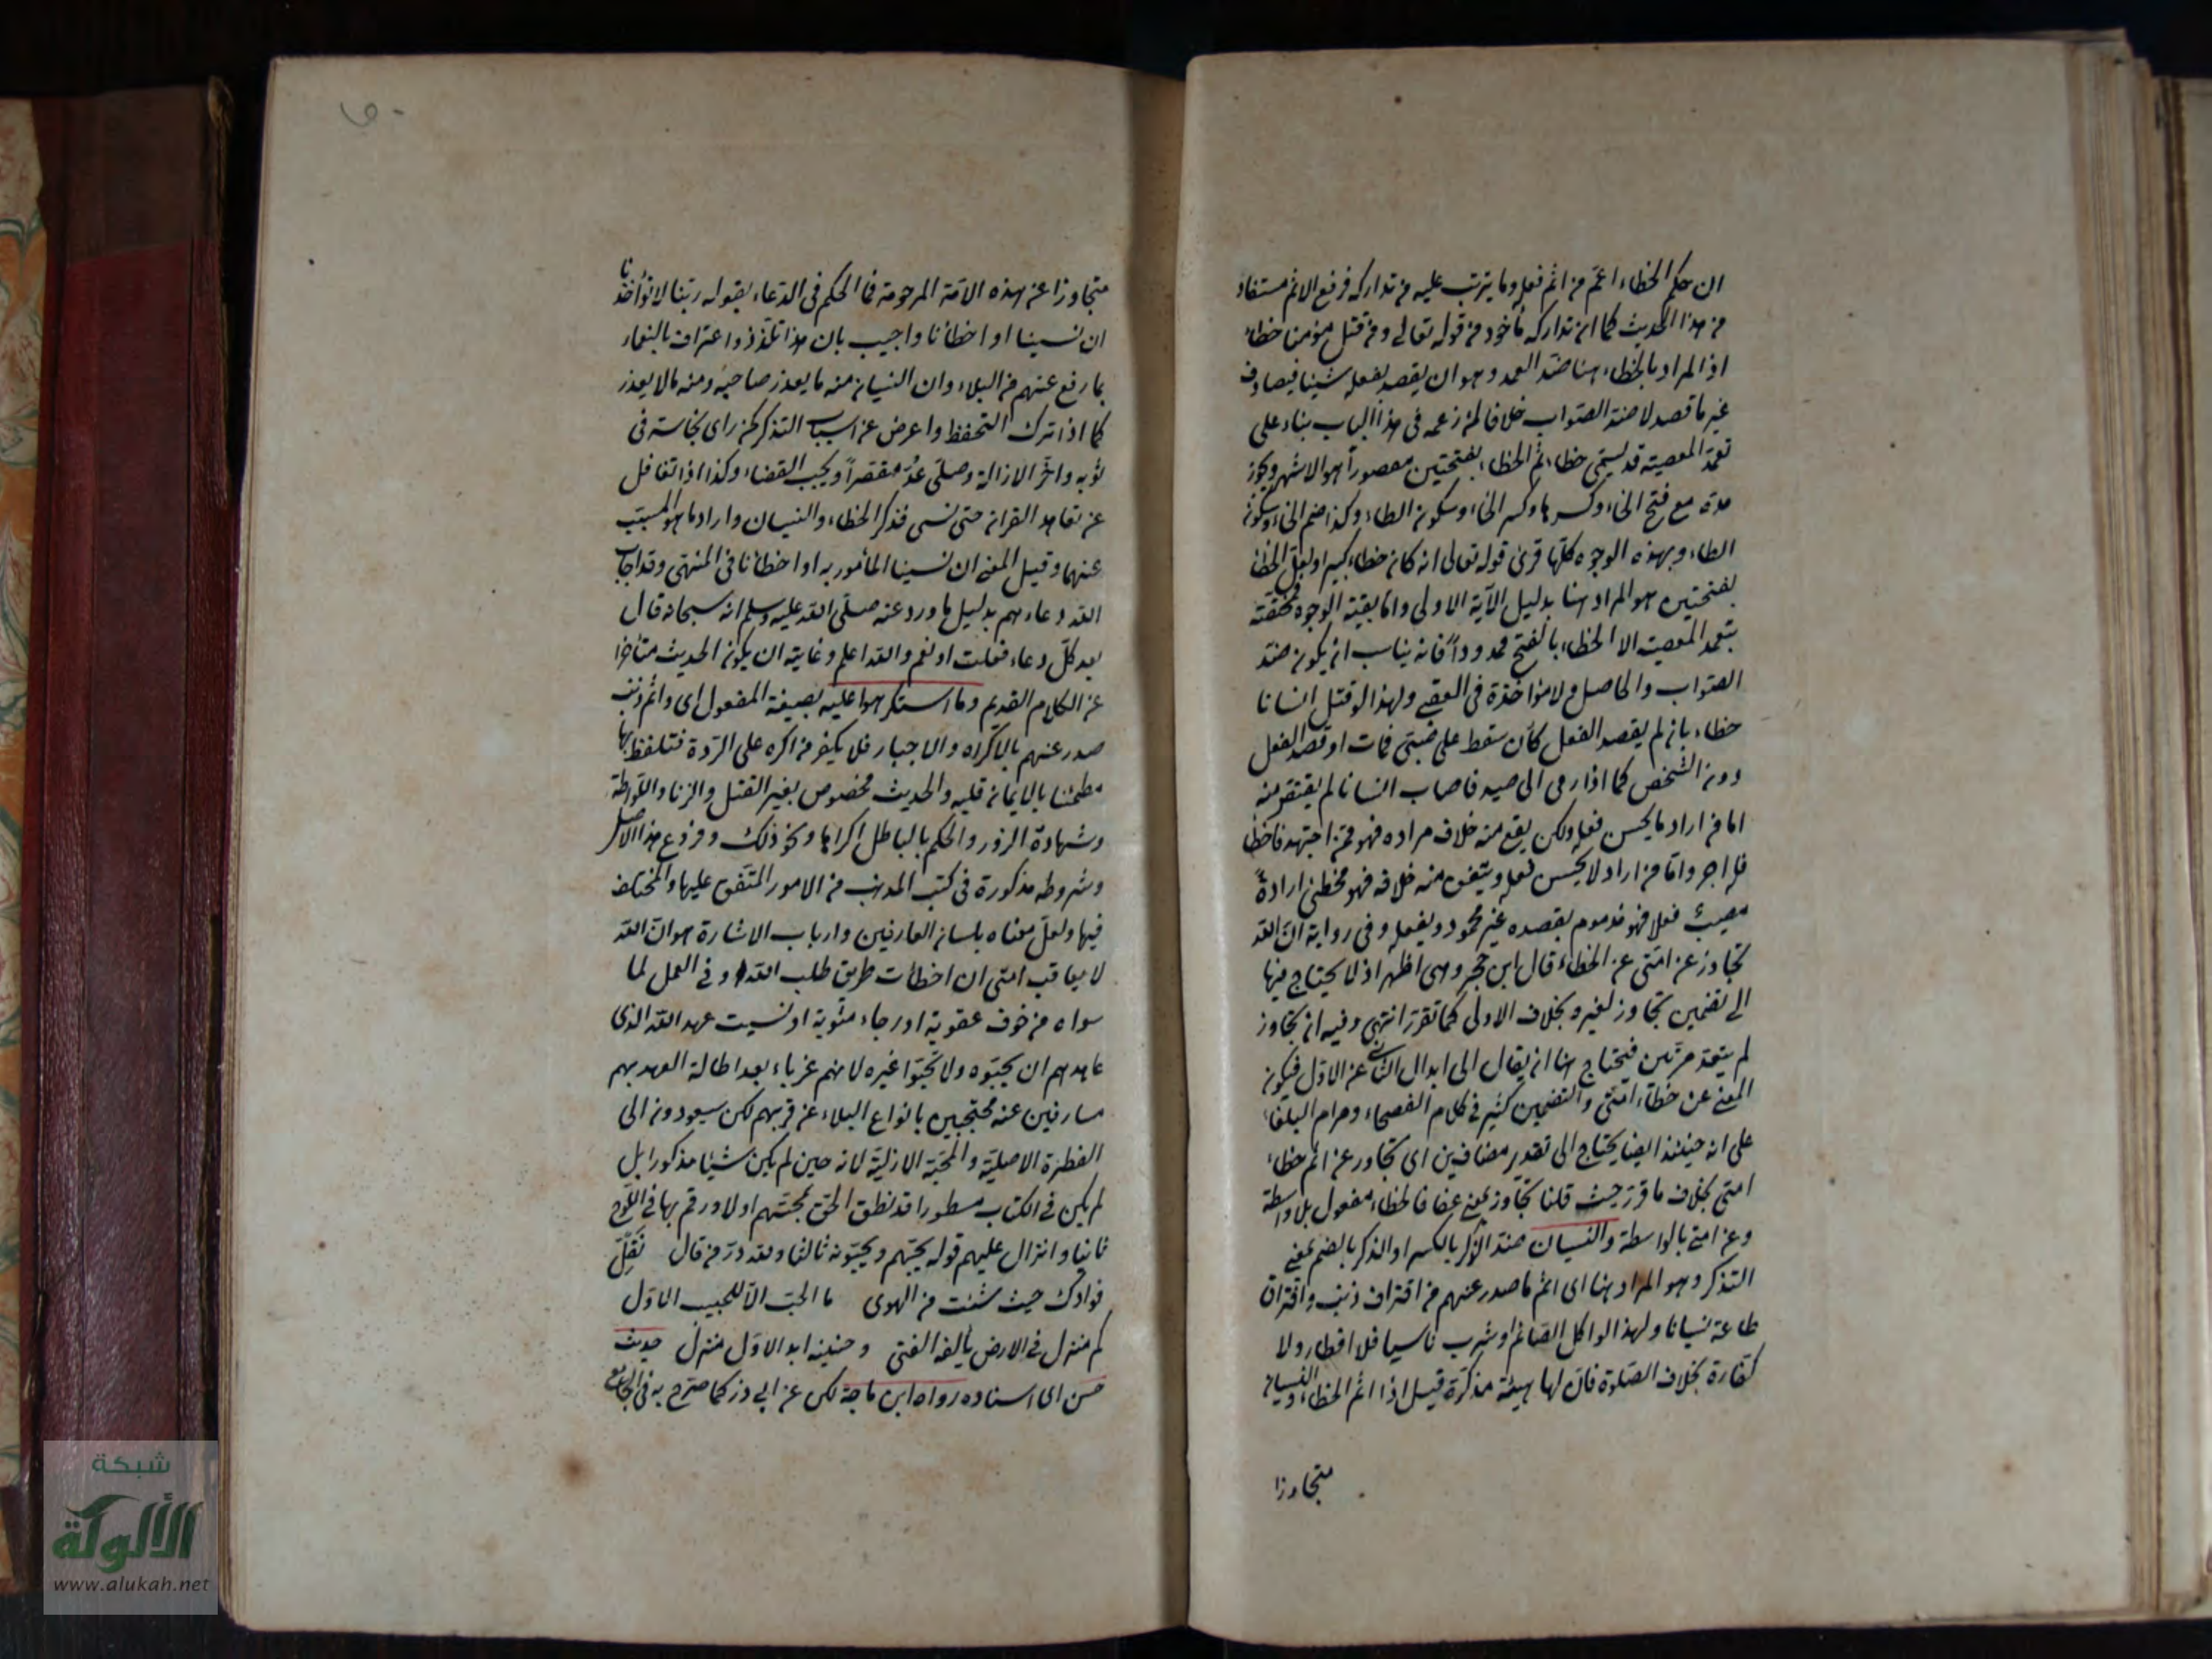 ان حكم الخطاء اعم من اثم فعله وما يترتب عليه من تداركه فرفع الاثم مستفاد
من هذا الحديث كما ان تداركه مأخوذ من قوله تعالى ومن قتل مؤمنا خطاء
اذ المراد بالخطاء هنا ضد العمد وهو ان يقصد بفعله شيئا فيصادف
غير ما قصد لا ضد الصواب خلافا لمن زعمه في هذا الباب بناء على
تعمد المعصية قد يسمى خطاء ثم الخطاء بفتحتين مقصوراً هو الاشهر ويجوز
مده مع فتح الخاء وكسرها وكسر الخاء وسكون الطاء وكذا ضم الخاء وسكون
الطاء وبهذه الوجوه كلها قرئ قوله تعالى انه كان خطاء كبيرا ولعل الخطا
بفتحتين هو المراد هنا بدليل الآية الاولى واما بقية الوجوه فمختصة
بتعمد المعصية الا الخطاء بالفتح ممدوداً فانه يناسب ان يكون ضد
الصواب والحاصل ولا مؤاخذة في العقبى ولهذا لو قتل انسانا
خطاء بان لم يقصد الفعل كأن سقط على صبي فمات او قصد الفعل
دون الشخص كما اذا رمى الى صيد فاصاب انسانا لم يقتص منه
اما من اراد ما يحسن فعله ولكن يقع منه خلاف مراده فهو ممن اجتهد فاخطأ
فله اجر واما من اراد لا يحسن فعله ويتفق منه خلافه فهو مخطئ ارادةً
مصيب فعلا فهو مذموم بقصده غير محمود بفعله وفي رواية ان الله
تجاوز عن امتي عن الخطاء قال ابن حجر وهي اظهر اذ لا يحتاج فيها
الى تضمين تجاوز لغيره بخلاف الاولى كما تقرر انتهى وفيه ان تجاوز
لم يتعد مرتين فتحتاج هنا ان يقال الى ابدال الثاني عن الاول فيكون
المعنى عن خطاء امتي والتضمين كثير في كلام الفصحاء ومرام البلغاء
على انه حينئذ ايضا يحتاج الى تقدير مضافين اى تجاوز عن اثم خطاء
امتي بخلاف ما قرر حيث قلنا تجاوز بمعنى عفا فالخطاء مفعول بلا واسطة
وعن امتي بالواسطة والنسيان ضد الذكر بالكسر او الذكر بالضم بمعنى
التذكر وهو المراد هنا اى اثم ما صدر عنهم من اقتراف ذنب وافتراق
طاعة نسيانا ولهذا لو اكل الصائم او شرب ناسيا فلا افطار ولا
كفارة بخلاف الصلوة فان لها هيئة مذكرة قيل اذا اثم الخطاء والنسيان
متجاوزا
متجاوزا عن هذه الامة المرحومة فما الحكم في الدعاء بقوله ربنا لا تؤاخذنا
ان نسينا او اخطأنا واجيب بان هذا تلذذ واعتراف بالنعماء
بما رفع عنهم من البلاء وان النسيان منه ما يعذر صاحبه ومنه ما لا يعذر
كما اذا ترك التحفظ واعرض عن اسباب التذكر كمن راى نجاسة في
ثوبه واخر الازالة وصلى عُدّ مقصراً ويجب القضاء وكذا اذا تغافل
عن تعاهد القران حتى نسى فذكر الخطاء والنسيان واراد ما هو المسبب
عنهما وقيل المعنى ان نسينا المأمور به او اخطأنا في المنتهى وقد اجاب
الله دعاءهم بدليل ما ورد عنه صلى الله عليه وسلم انه سبحانه قال
بعد كل دعاء فعلت او نعم والله اعلم وغايته ان يكون الحديث متأخرا
عن الكلام القديم وما استكرهوا عليه بصيغة المفعول اى واثم ذنب
صدر عنهم بالاكراه والاجبار فلا يكفر من اكره على الردة فتلفظ بها
مطمئنا بالايمان قلبه والحديث مخصوص بغير القتل والزنا واللواطة
وشهادة الزور والحكم بالباطل اكراها ونحو ذلك وفروع هذا الاصل
وشروطه مذكورة في كتب المذهب من الامور المتفق عليها والمختلف
فيها ولعل معناه بلسان العارفين وارباب الاشارة هو ان الله
لا يعاقب امتي ان اخطأت طريق طلب الله وفي العمل لما
سواه من خوف عقوبة او رجاء مثوبة او نسيت عهد الله الذي
عاهدهم ان يحبوه ولا يحبوا غيره لانهم غرباء بعد اطالة العهد بهم
صارفين عنه محتجبين بانواع البلاء عن قربهم لكن سيعودون الى
الفطرة الاصلية والمحبة الازلية لانه حين لم يكن شيئا مذكورا بل
لم يكن في الكتاب مسطورا قد نطق الحق بمحبتهم اولا ورقم بها في اللوح
ثانيا وانزال عليهم قوله يحبهم ويحبونه ثالثا ولله در من قال نقّل
فوادك حيث شئت من الهوى ما الحب الا للحبيب الاول
كم منزل في الارض يألفه الفتى وحنينه ابدا لاول منزل حديث
حسن اى اسناده رواه ابن ماجة لكن عن ابي ذر كما صرح به في الجامع
شبكة
الألوكة
www.alukah.net